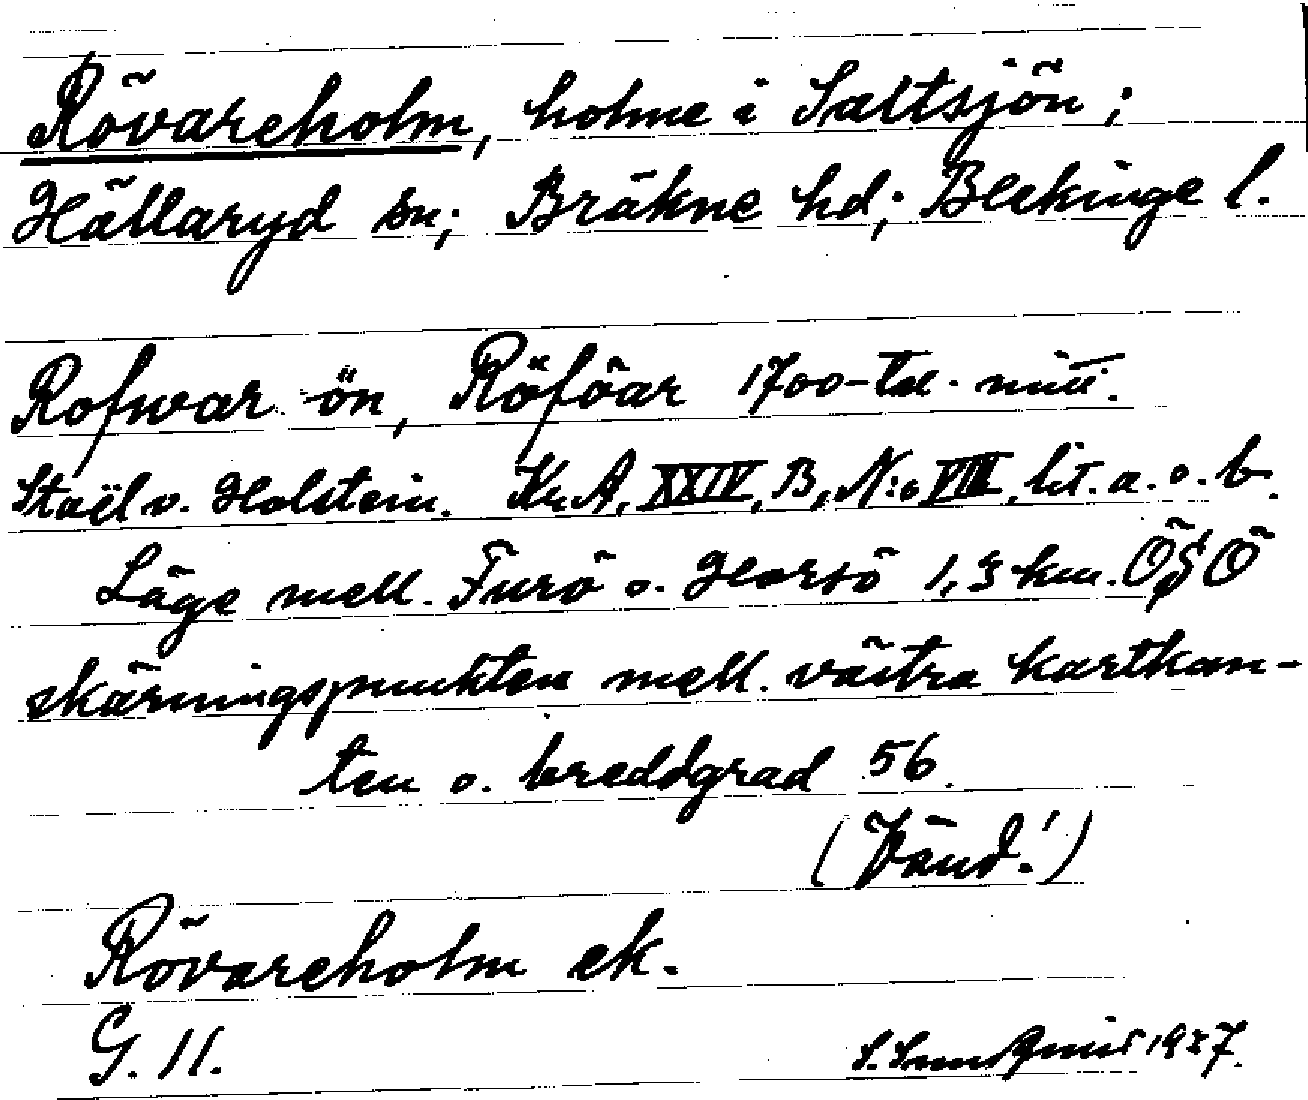 Rövareholm, holme i Saltsjön;
Hällaryd sn; Bräkne hd; Blekinge l.
Rofwar ön, Röföar 1700-tal.
Staël v. Holstein. Kr. A. XXIV, B, N:o VIII, lit. a. o. b.
Läge mell. Furö o. Horsö 1,3 km. ÖSÖ
skärningspunkten mell. västra kartkan-
ten o. breddgrad 56.
(Vänd!)
Rövareholm ek.
G. 11.
1927.